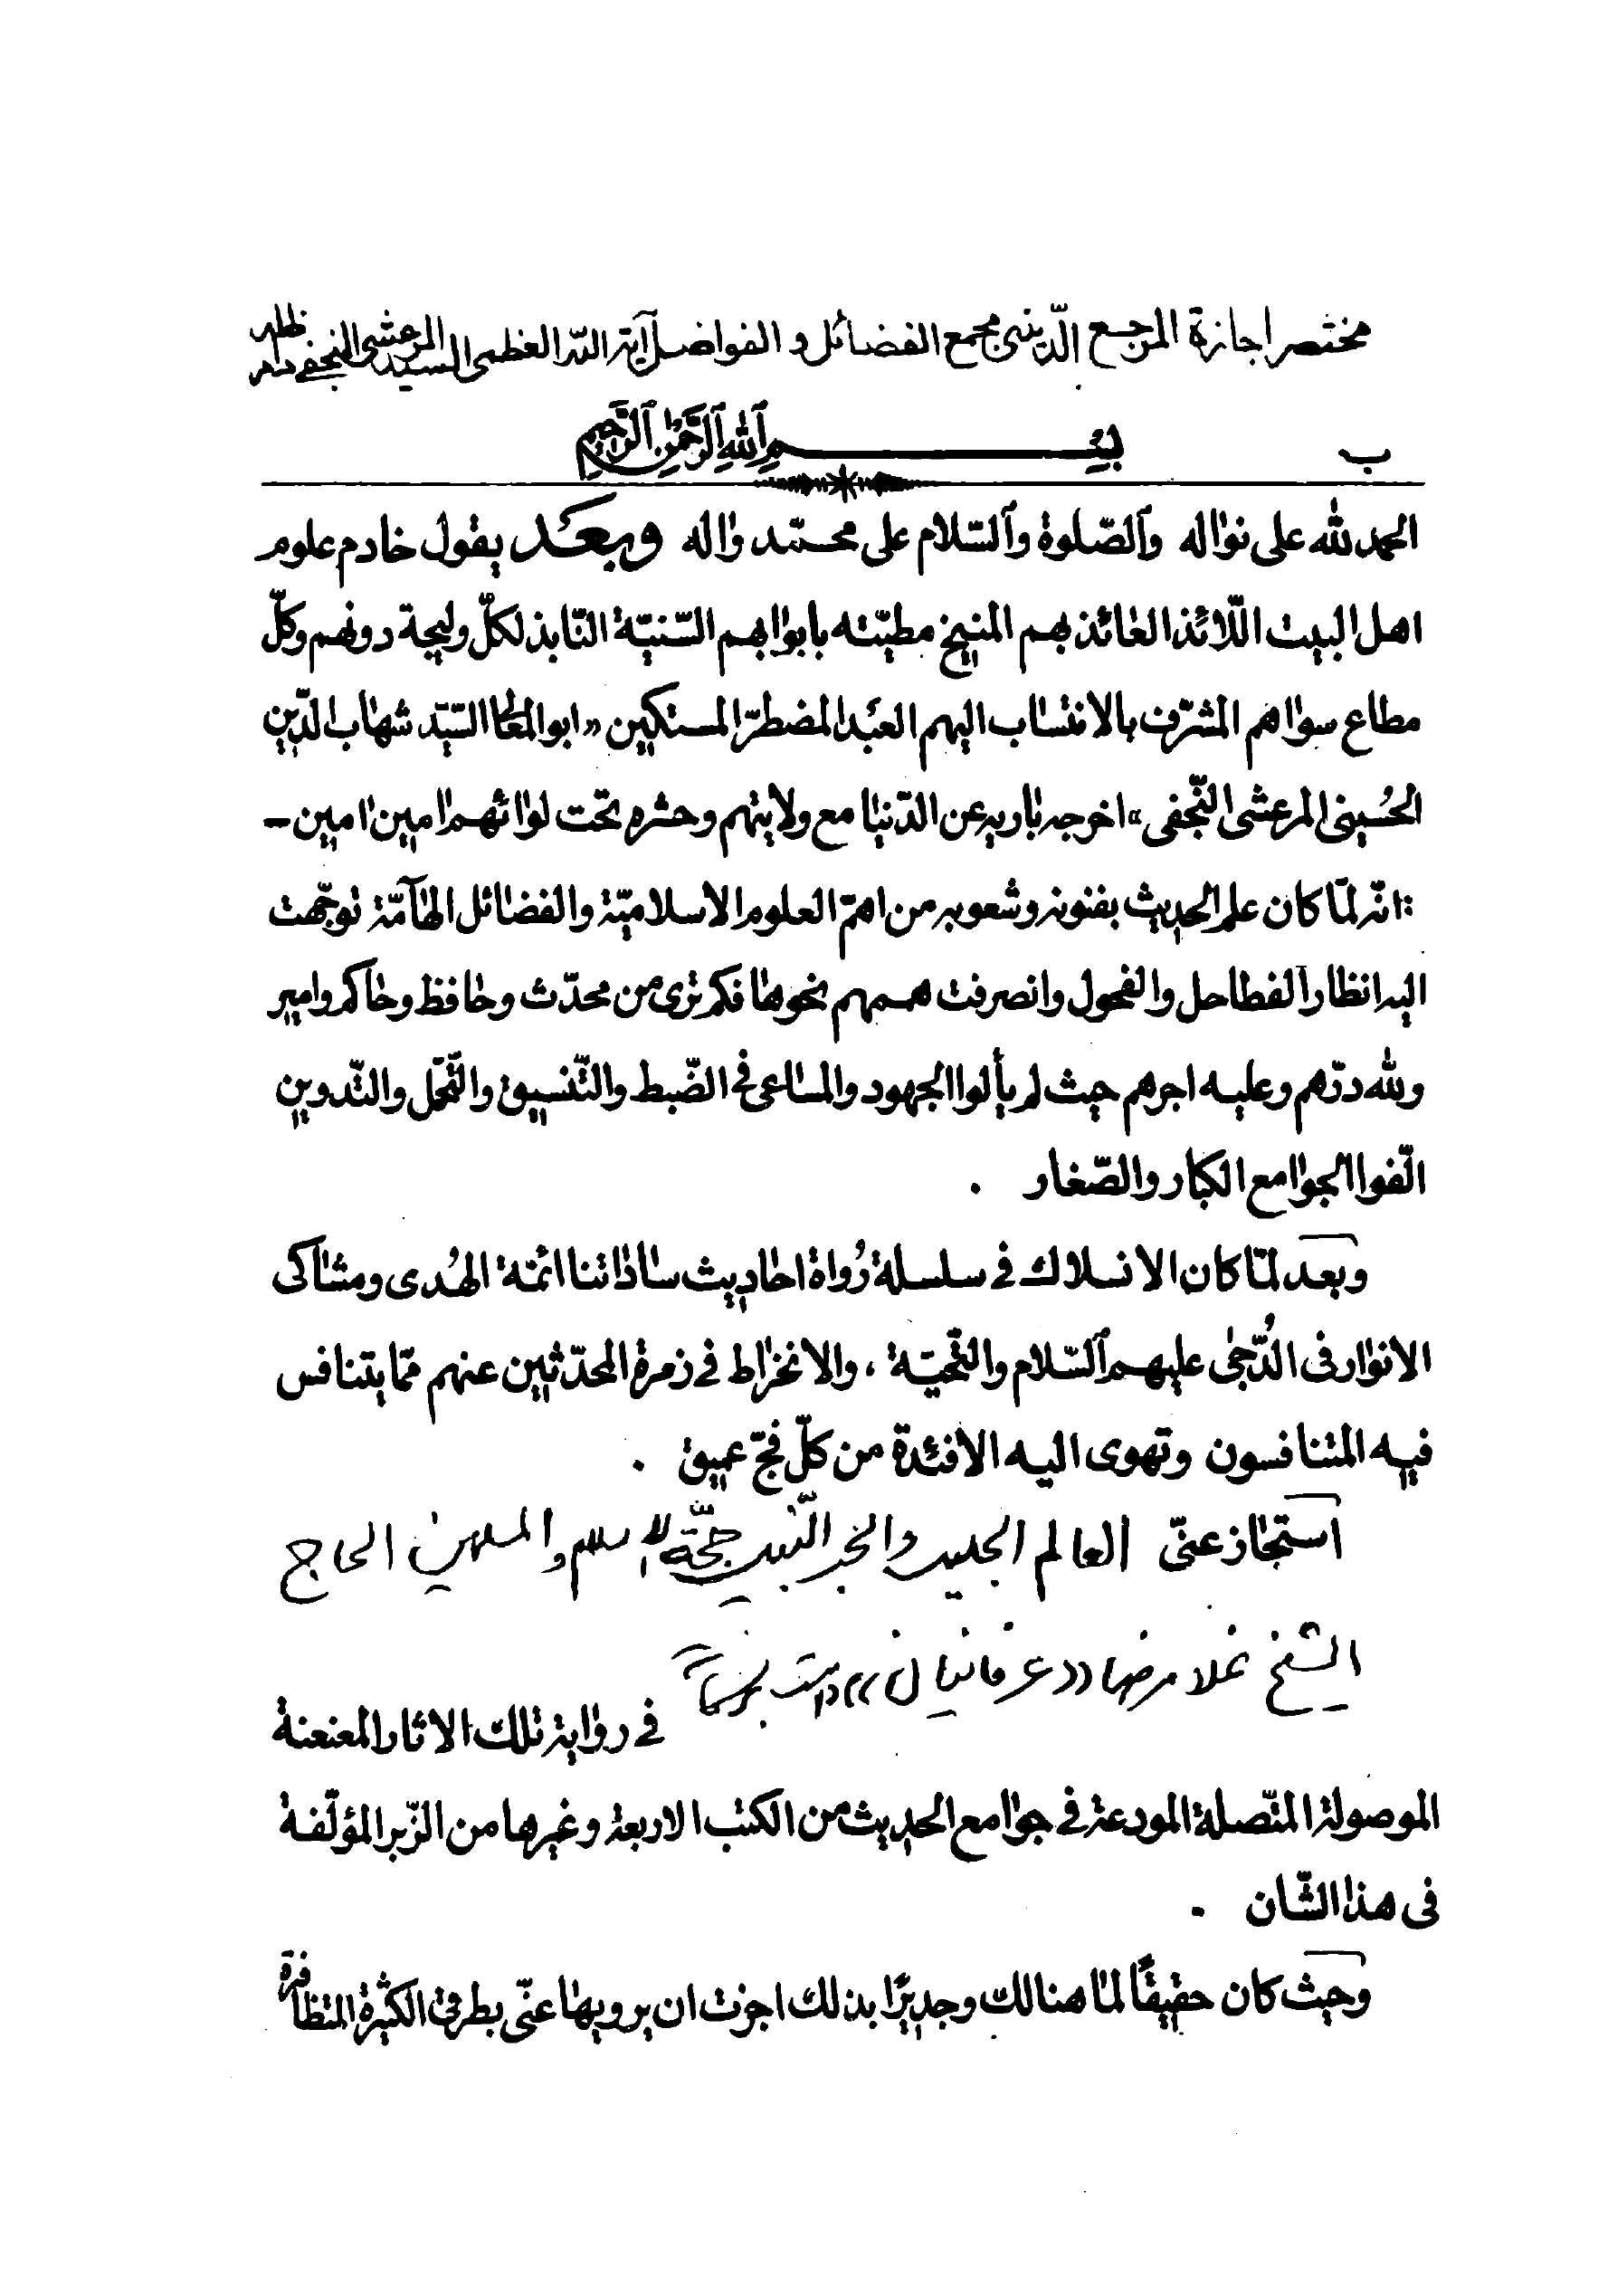 مختصر اجازة المرجع الدّينى مجمع الفضائل و الفواضل آية اللّه العظمى السيد المرعشى النجفى دام ظله
ب
بِسْمِ ٱللّٰهِ ٱلرَّحْمٰنِ ٱلرَّحِيمِ
الحمد للّٰه على نوٰاله وٱلصّلوة وٱلسّلام على محمّد وٰاله وبعد يقول خادم علوم
اهل البيت اللّائذ العٰائذ بهم المنيخ مطيّته بابوٰابهم السّنيّة النّابذ لكلّ وليجة دونهم وكلّ
مطاع سوٰاهم المشرّف بالانتسٰاب اليهم العبد المضطرّ المستكين «ابوالمعٰالى السّيّد شهٰاب الدّين
الحُسينى المرعشى النّجفى» اخرجه بٰاريه عن الدّنيٰا مع ولايتهم وحشره تحت لوٰائهم اٰمين اٰمين -
: انّه لمّا كان علم الحديث بفنونه وشعوبه من اهمّ العلوم الاسلاميّة والفضٰائل الهٰآمّة توجّهت
اليه انظار الفطاحل والفحول وانصرفت هممهم نحوهٰا فكم ترى من محدّث وحٰافظ وحٰاكم وامير
وللّٰه درّهم وعليه اجرهم حيث لم يألوا الجهود والمسٰاعى فى الضّبط والتّنسيق والتّحمّل والتّدوين
الّفوا الجوٰامع الكبٰار والصّغٰار .
وبعد لمّا كان الانسلاك فى سلسلة رُواة احٰاديث سٰادٰاتنا ائمّة الهُدى ومشٰاكى
الانوٰار فى الدُّجىٰ عليهم ٱلسّلام والتّحيّة ، والانخرٰاط فى زمرة المحدّثين عنهم ممّا يتنافس
فيه المتنافسون وتهوى اليه الافئدة من كلّ فجّ عميق .
استجٰاز عنّى العالم الجليل والحبر النّبيل حجّة الاسلام والمسلمين الحاج
الشيخ غلامرضا «عرفانيان» دامت بركاته
فى روٰاية تلك الاثار المعنعنة
الموصولة المتّصلة المودعة فى جوٰامع الحديث من الكتب الاربعة وغيرها من الزّبر المؤلّفة
فى هذا الشّان .
وحيث كان حقيقًا لمٰا هنالك وجديرًا بذلك اجزت ان يرويهٰا عنّى بطرقى الكثيرة المتظافرة